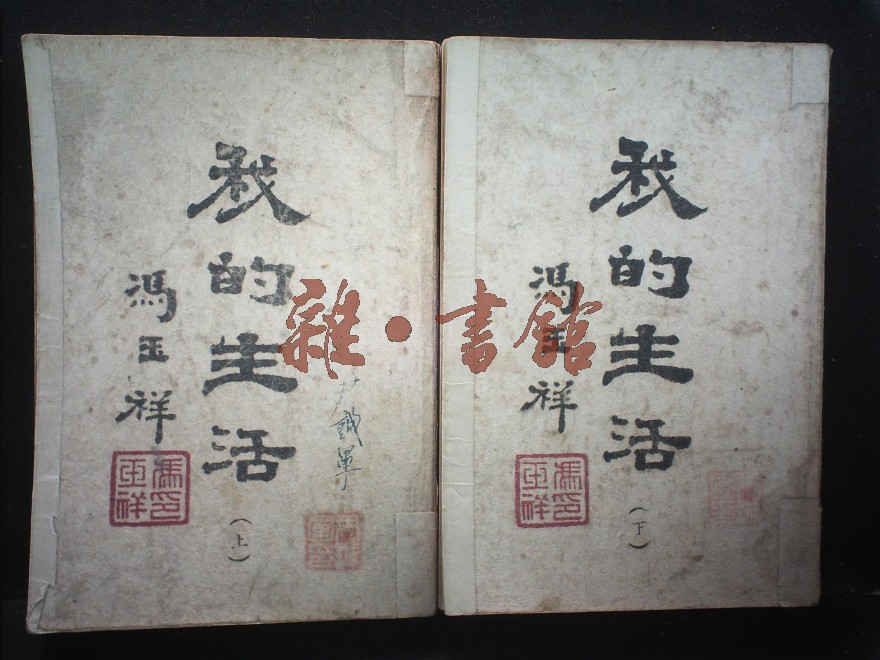 我的生活
馮玉祥
馮玉祥印
（上）
我的生活
馮玉祥
馮玉祥印
（下）
雜·書館